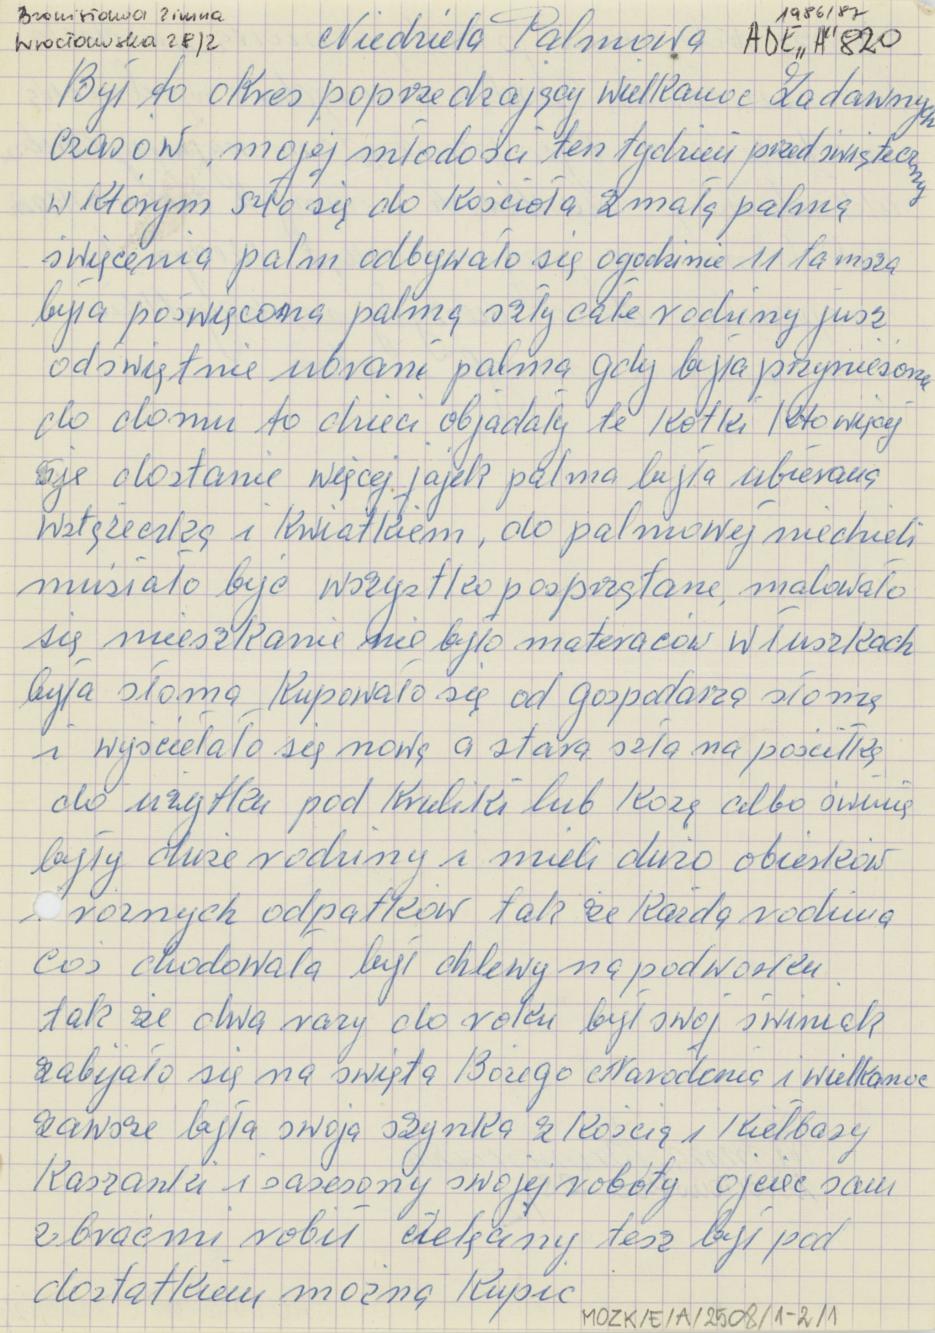 Bronisława Zimna
Wrocławska 28/2
1986/87
Niedziela Palmowa ADE „A" 820
Był to okres poprzedzający wielkanoc Zadawnych
czasów, mojej młodości ten tydzień przedświąteczny
w którym szło się do kościoła z małą palmą
święcenia palm odbywało się ogodzinie 11 ta msza
była poświęcona palmą szły całe rodziny jusz
odświętnie ubrani palma gdy była przyniesiona
do domu to dzieci objadały te kotki kto więcej
zje dostanie więcej jajek palma była ubierana
wstążeczką i kwiatkiem, do palmowej niedzieli
musiało być wszystko posprzątane, malowało
się mieszkanie nie było materaców w łuszkach
była słoma kupowało się od gospodarza słomę
i wyściełało się nową a stara szła na pościłkę
do użytku pod kruliki lub kozę albo świnię
były duże rodziny i mieli dużo obiesków
i rożnych odpatków tak że każda rodzina
coś chodowała był chlewy na podworku
tak że dwa razy do roku był swój świniak
zabijało się na święta Bożego Narodenia i wielkanoc
zawsze była swoja szynka z kością i kiełbasy
kaszanki i salcesony swojej roboty ojciec sam
z braćmi robił cielęciny tesz był pod
dostatkiem można kupic
MOZK/E/A/2508/1-2/1